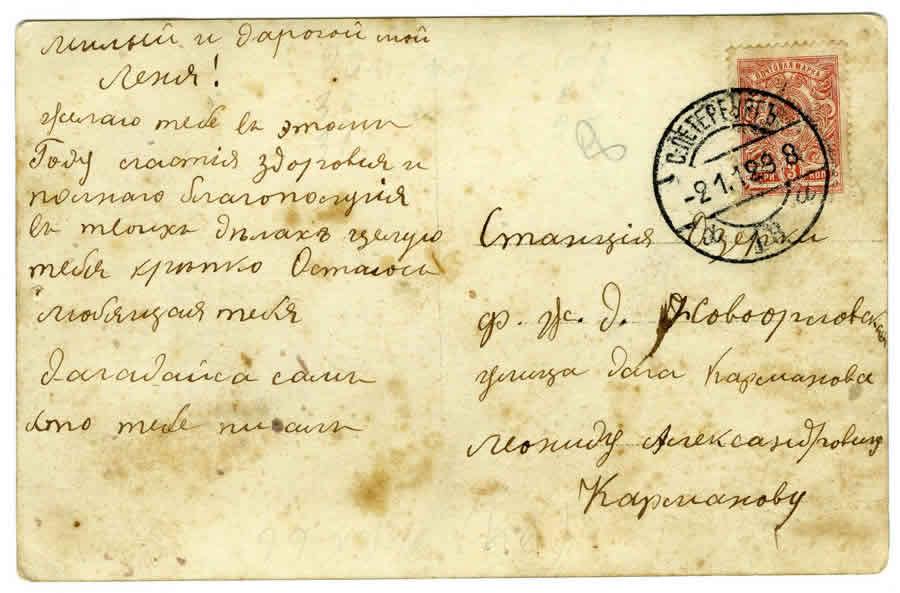 милый и дарогой мой
Леня!
Желаю тебе въ этомъ
Году счастия здоровия и
полнаго благополучия
въ твоихъ дѣлахъ целую
тебя крѣпко Остаюсь
любящая тебя
дагадайса самъ
кто тебе писалъ
ПОЧТОВАЯ МАРКА
ТРИ 3 КОП
С.ПЕТЕРБУРГЪ
-2.1.12
Станция Озерки
ф. ж. д.
улица дача Карманова
Леониду Александровичу
Карманову